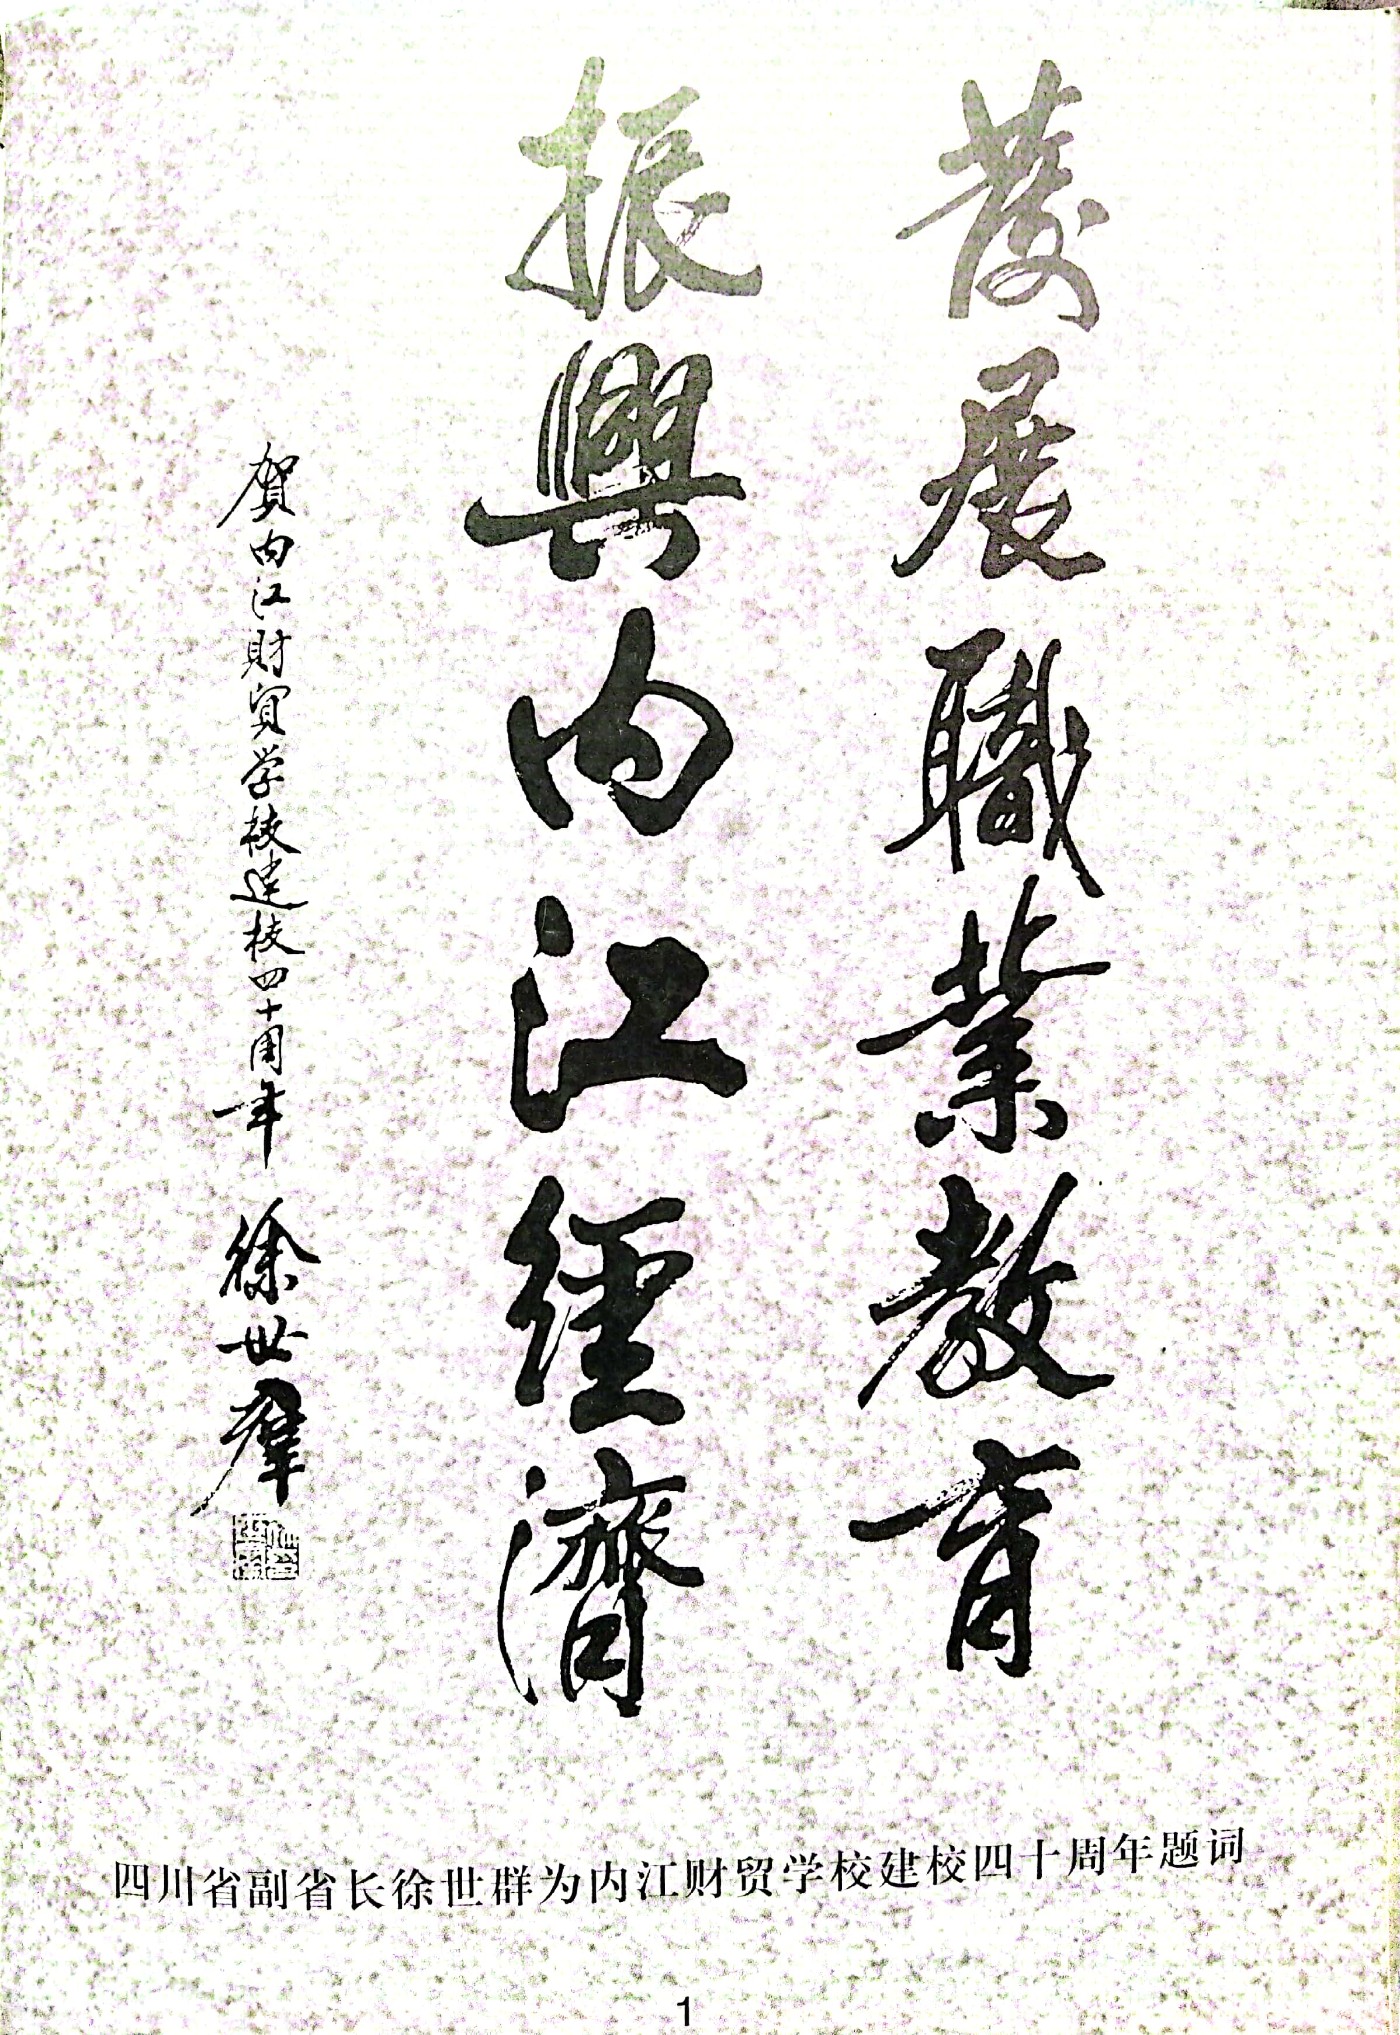 發展職業教育
振興内江經濟
賀内江財貿学校建校四十周年 徐世群
四川省副省长徐世群为内江财贸学校建校四十周年题词
1